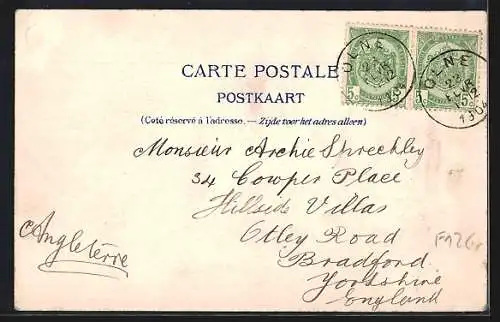 CARTE POSTALE
POSTKAART
(Coté réservé à l'adresse. — Zijde voor het adres alleen)
OLNE
1904
OLNE
1904
Monsieur Archie Spreckley
34 Cowper Place
Hillside Villas
Otley Road
Bradford
Yorkshire
England
Angleterre